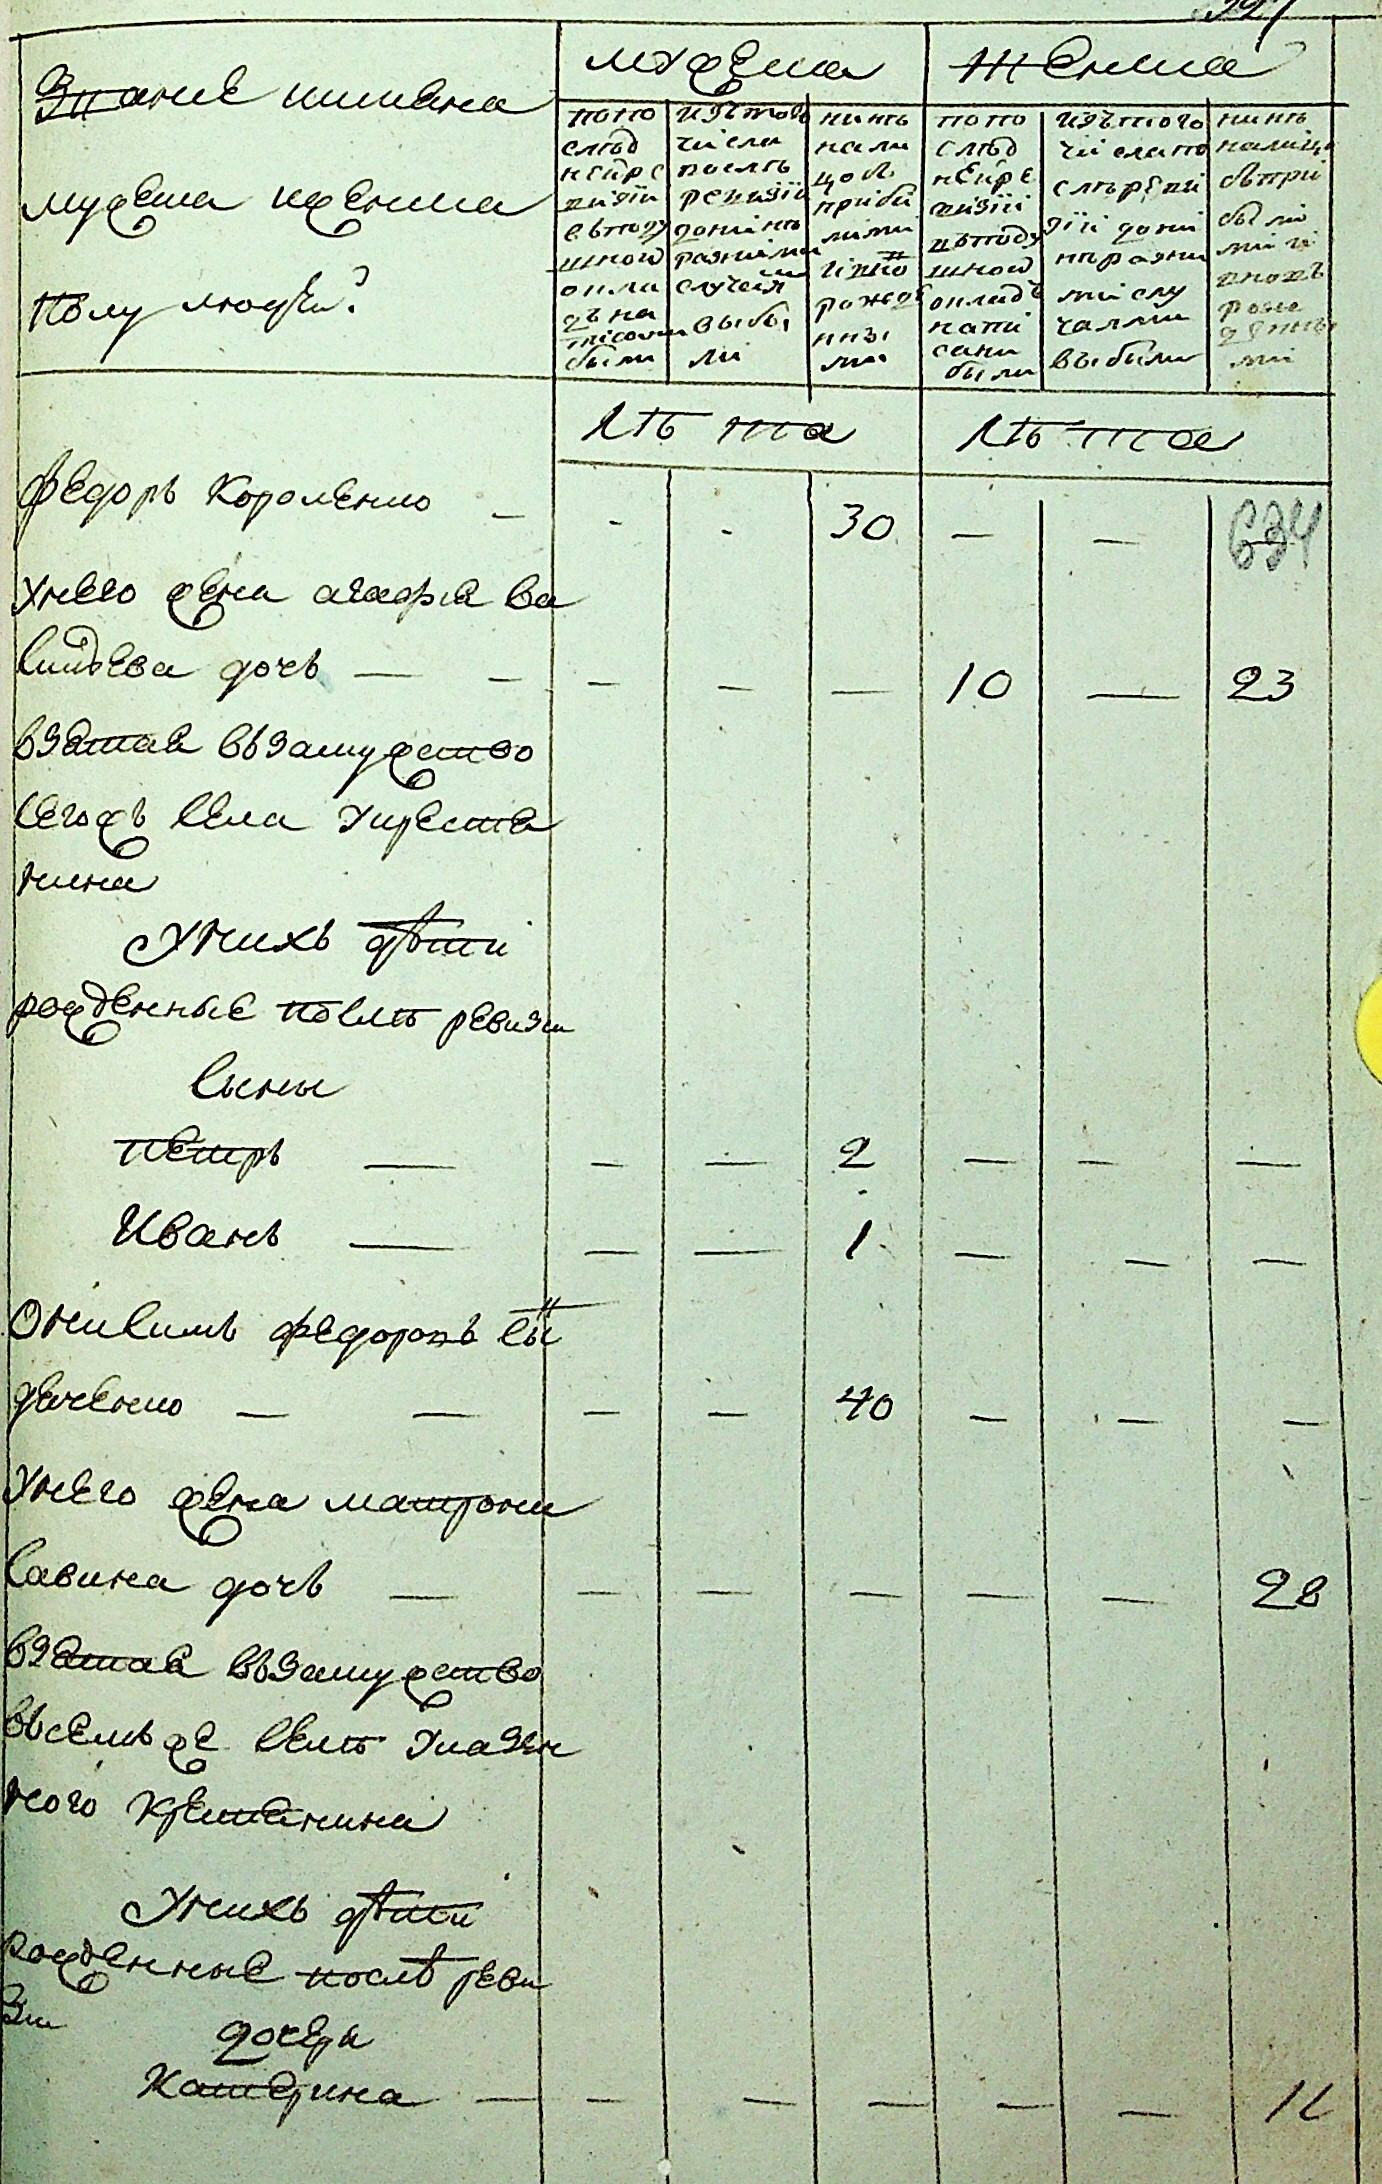 Званiе имена
мужеска и женска
полу людей?
мужеска
женска
по по
след
ней ре
визiи
въ поду
шной
окла
дъ на
писани
были
изъ того
числа
послѣ
ревизiи
донынѣ
разними
случай
выбы
ли
нынѣ
нали
цо съ
прибы
лими
рожде
нны
ми
по по
слѣд
ней ре
визiи
въ поду
шной
окладъ
напи
сани
были
изъ того
числа по
слѣ реви
зiи дони
нѣ разни
ми слу
чаями
выбыли
нынѣ
налицо
съ при
были
ми и
вновь
рож
денны
ми
лѣта
лѣта
Федоръ Короленко - - - 30 - - 634
У него жена Агафiя Ва
сильева дочь - - - - - 10 - 23
взятая въ замужство
сегожъ села у крестя
нина
У нихъ дѣти
рожденные послѣ ревизiи
сыны
Петръ - - - 2 - - -
Иванъ - - - 1 - - -
Онисимъ Федоровъ сын
- - - - 40 - - -
У него жена Матрона
Савина дочь - - - - - - 28
взятая въ замужство
въ семъ же селѣ у казен
ного крестянина
У нихъ дѣти
рожденные послѣ реви
зiи
дочеры
Катерина - - - - - - 11